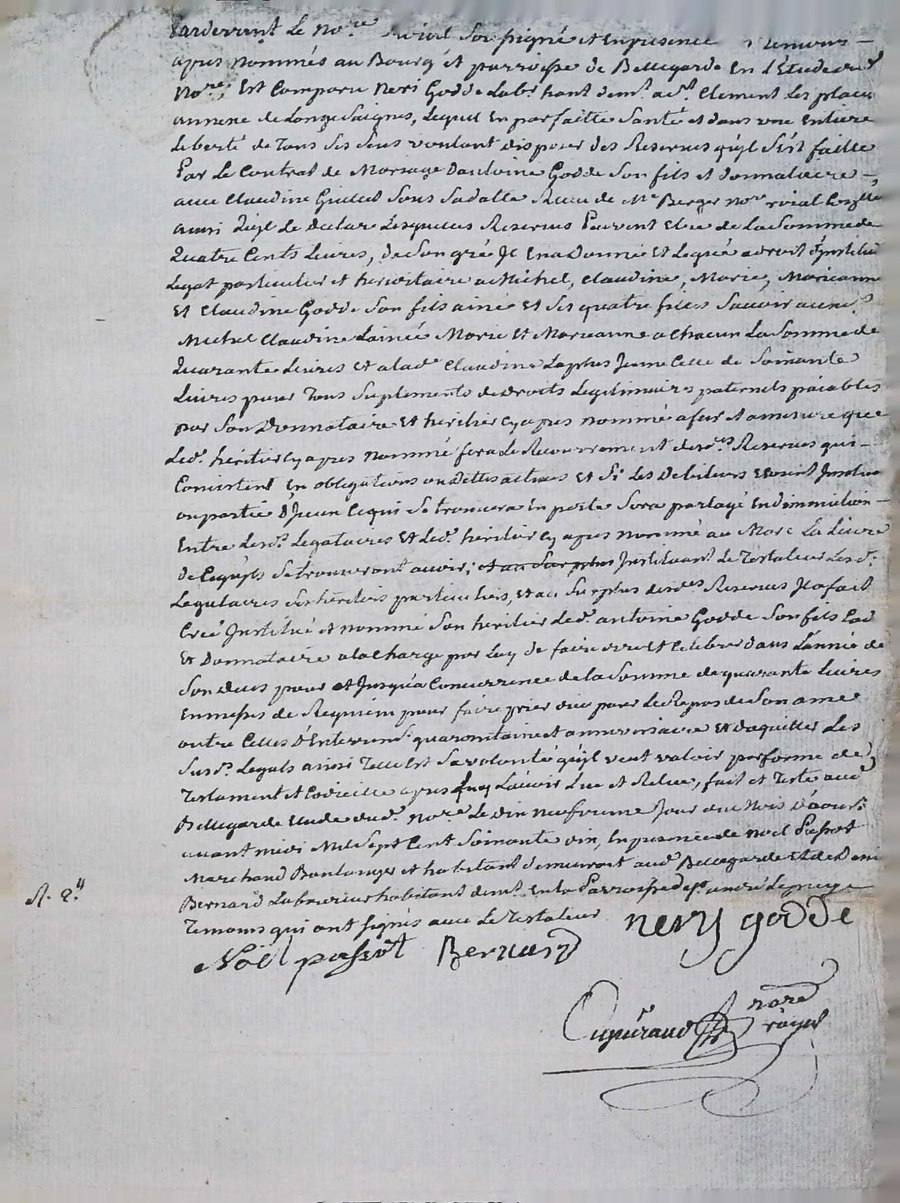 Pardevant le no.re roial Sousigné et En presence temoins
apres nommés au Bourg et parroisse de Bellegarde En l'Etude dud.
No.re, Est Comparu Neri Godde Lab.r hant dem.t a St. Clement Les places
annexe de Longe Saignes, Lequel En parfaitte Santé et dans une Entiere
Liberté de Tous Ses Sens voulant disposer des Reserves qu'jl S'est faitte
Par Le Contrat de Mariage D'antoine Godde Son fils et Donnataire
avec Claudine Sous Sa datte Receu de Me Berger no.re roial
ainsi qu'jl Le declare Lesquelles Reserves Peuvent Etre de La Somme de
Quatre Cents Livres, de Son gré Jl En a Donné et Legué a droit d'jnstitution
Legat particulier et hereditaire a Michel, Claudine, Marie, Marieanne
Et Claudine Godde Son fils ainé Et Ses quatre filles Sauoir aux d.s
Michel Claudine Lainée Marie et Marieanne a Chacun La Somme de
Quarante Livres et a lad.e Claudine La plus Jeune Celle de Soixante
Livres pour Tous Suplements de droits Legitimaires paternels païables
par Son Donnataire Et heritier Cy apres nommé a fur et amesure que
Led. heritier Cy apres nommé fera Le Recouvrement desd.es Reserves qui
Consistent En obligations ou Dettes actives Et Si Les Debiteurs
ou partie D'jceux Ce qui Se trouvera En perte Sera partagé En diminution
Entre Lesd.s Legataires Et Led. heritier Cy apres nommé au Marc La Livre
de Ce qu'jls Se trouveront avoir; et au Surplus Jnstituant Le Testateur Lesd.
Legataires Ses heritiers particuliers, et au Surplus desd.es Reserves Jl a fait
Créé Jnstitué et nommé Son heritier Led. antoine Godde Son fils
Et Donnataire a la Charge par Luy de faire dire Et Celebrer dans L'année de
Son deces pour et Jusqu'a Concurrence de la Somme de quarante Livres
En messes de Requiem pour faire prier dieu pour Le Repos de Son ame
outre Celles D'Enterrem.t quarantaine et anniversaire Et D'aquitter Les
Susd.s Legats ainsi Telle Est Sa volonté qu'jl veut valoir par forme de
Testament et Codicille apres Luy L'avoir Lue et Relue, fait et Testé aud.
Bellegarde Etude dud. No.re Le dix neufvieme Jour du Mois D'aoust
avant midi Mil Sept Cent Soixante dix, En presence de Noël Passot
Marchand Boulanger et habitant demeurant aud. Bellegarde Et de
Bernard Laboureur habitant dem.t En la Parroisse de St. andré Le puy
Temoins qui ont Signés avec Le Testateur
nery godde
Noël passot Bernard
Dupueraud nore
royal
R. 2.tt